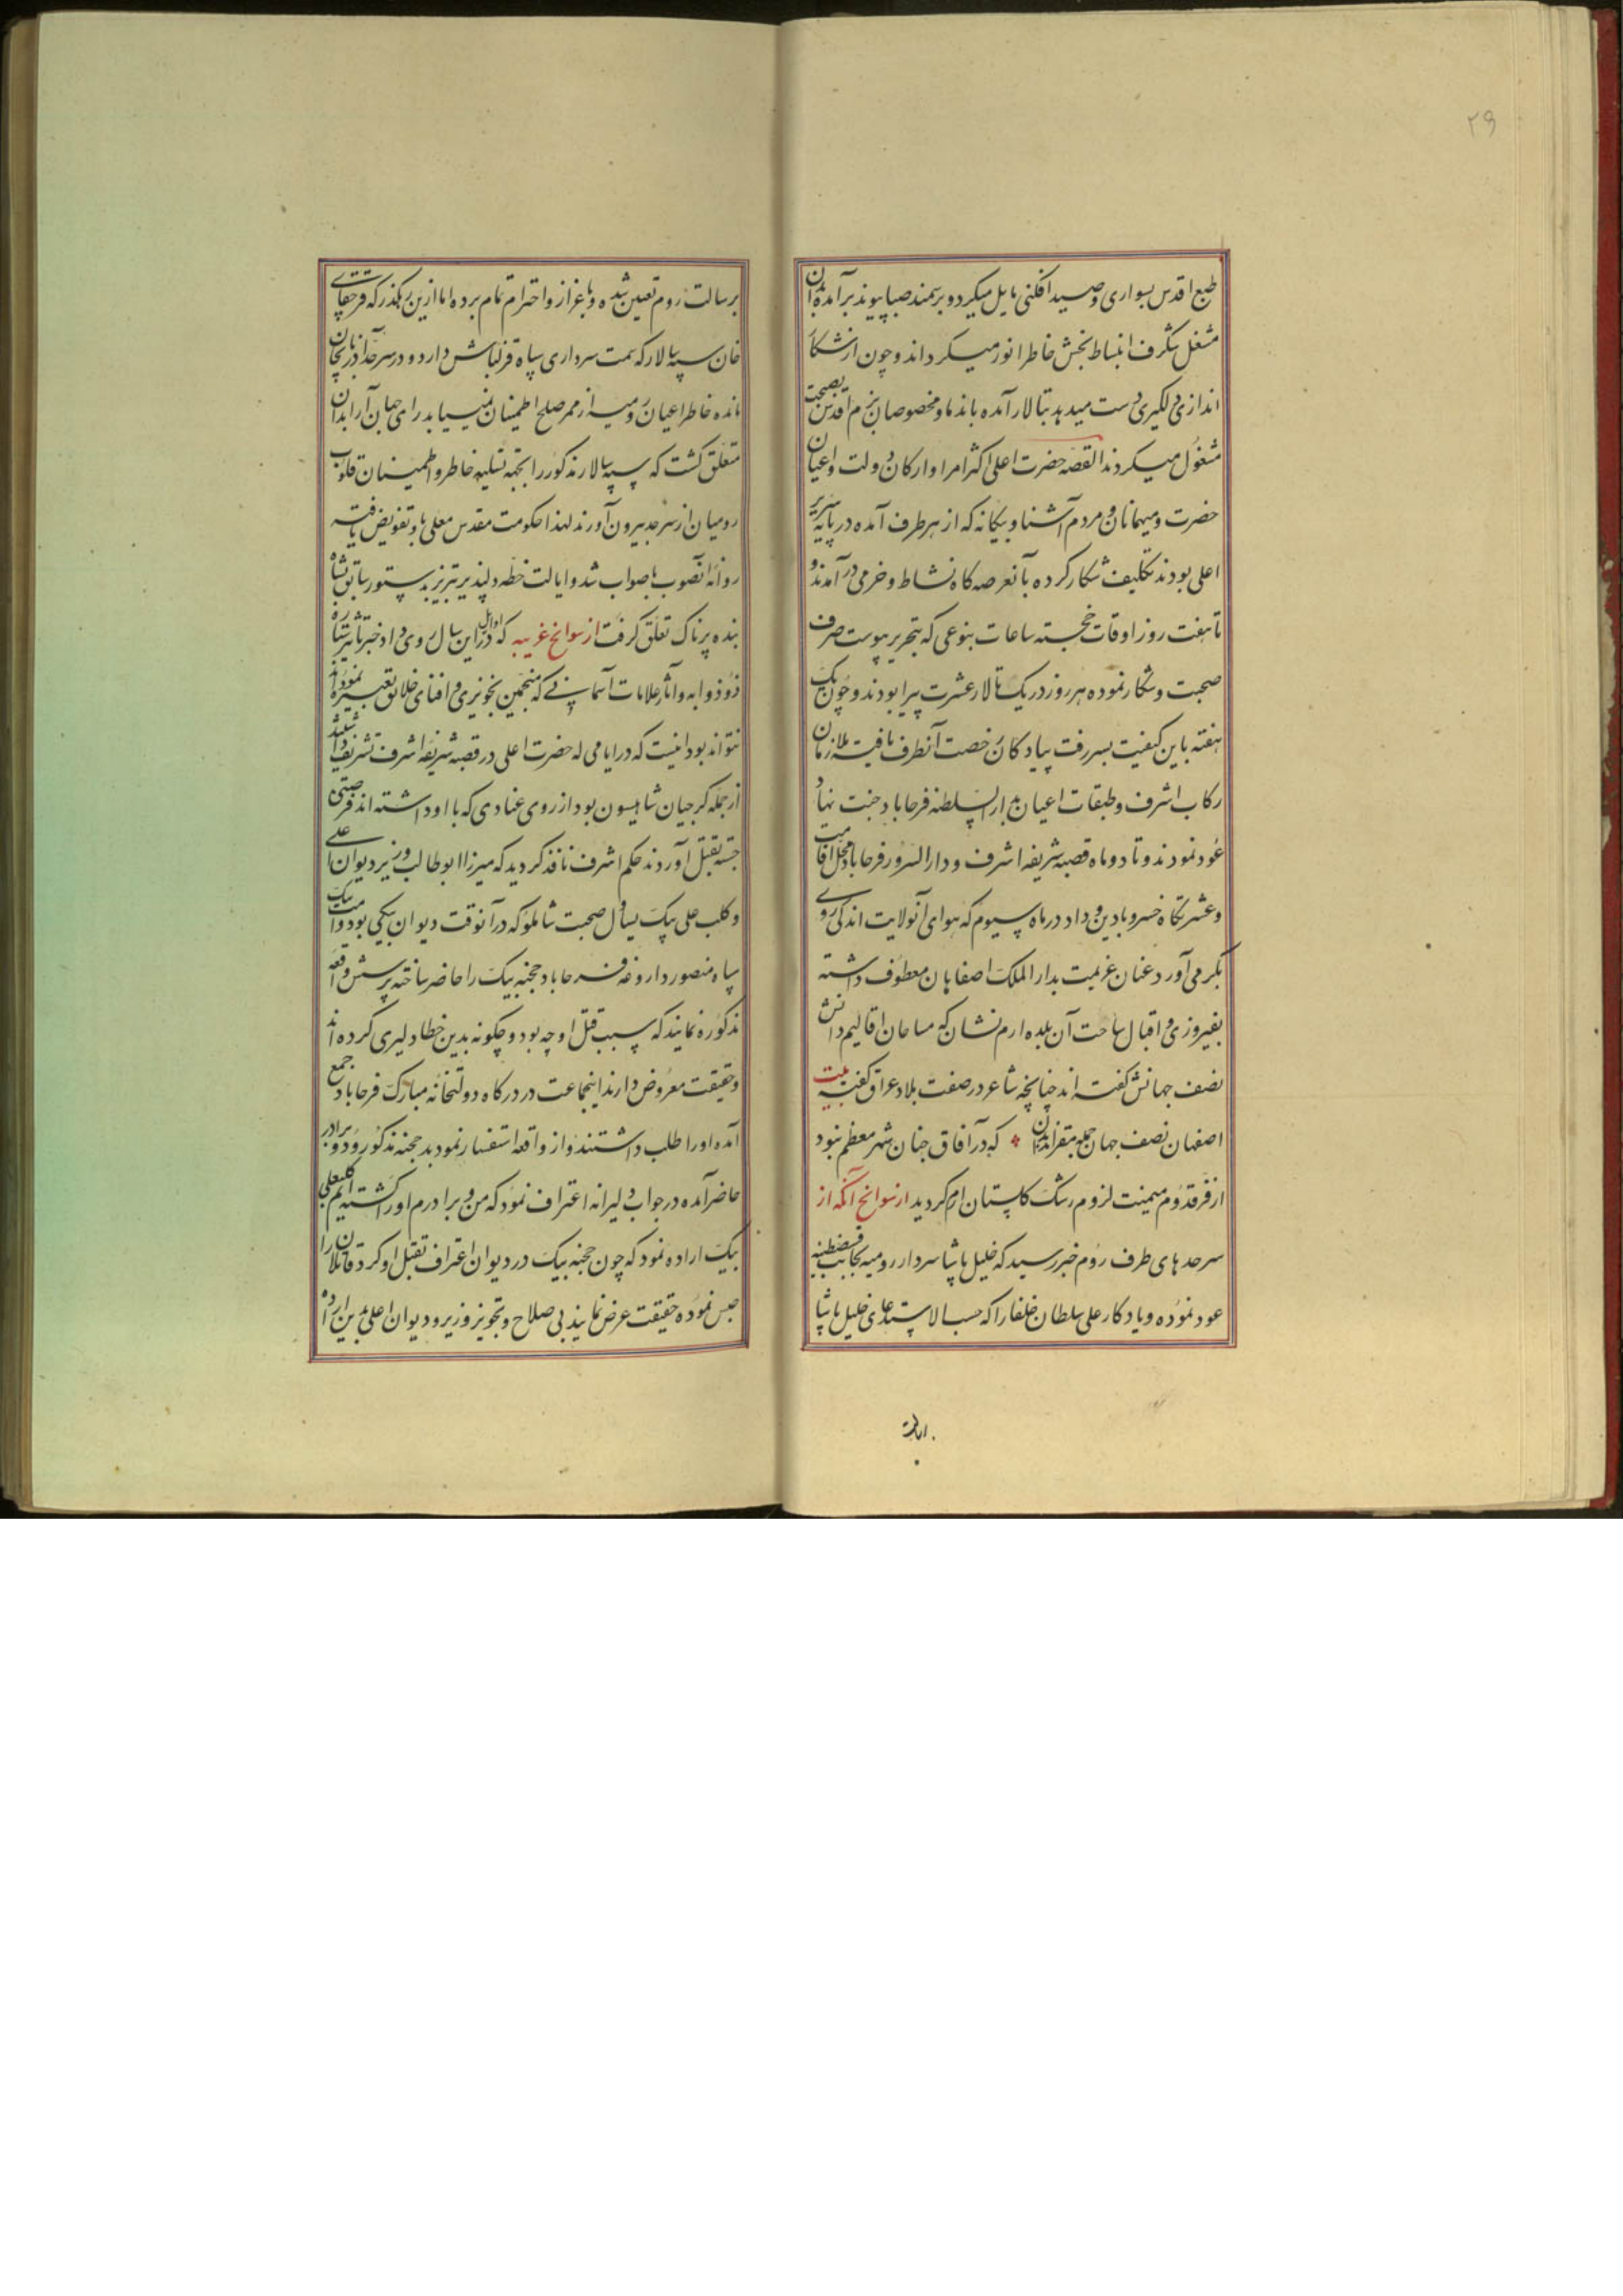 ۲۹
طبع اقدس بسواری و صید افکنی مایل میکردد بر سمند صبا پیوند برآمده بدان
شغل شکرف انبساط بخش خاطر انور میکرداند و چون از شکار
اندازی دلکیری دست میدهد بتالار آمده باندما و مخصوصان بزم اقدس بصحبت
مشغول میکردند القصه حضرت اعلی اکثر امرا و ارکان دولت و اعیان
حضرت و میهمانان و مردم آشنا و بیکانه که از هر طرف آمده در پایه سریر
اعلی بودند تکلیف شکار کرده بآنعرصه کاه نشاط و خرمی در آمدند و
تا هفت روز اوقات خجسته ساعات بنوعی که بتحریر پیوست صرف
صحبت و شکار نموده هر روز در یک تالار عشرت پیرا بودند و چون یک
هفته باین کیفیت بسر رفت پیادکان رخصت آنطرف یافته ملازمان
رکاب اشرف و طبقات اعیان بدار السلطنه فرحاباد جنت نهاد
عود نمودند و تا دو ماه قصبه شریفه اشرف و دار السرور فرحاباد محل اقامت
و عشرتکاه خسرو بادین و داد در ماه سیوم که هوای آنولایت اندکی روی
بکرمی آورد عنان عزیمت بدار الملک اصفاهان معطوف داشته
بفیروزی و اقبال ساحت آن بلده ارم نشان که مساحان اقالیم دانش
نصف جهانش کفته اند چنانچه شاعر در صفت بلاد عراق کفته بیت
اصفهان نصف جهان جمله مقراند بدان که در آفاق چنان شهر معظم نبود
از فر قدوم میمنت لزوم رشک کلستان ارم کردید از سوانح آنکه از
سرحدهای طرف روم خبر رسید که خلیل پاشا سردار رومیه بجانب قسطنطنیه
عود نموده و یادکار علی سلطان خلفا را که حسب الاستدعای خلیل پاشا
برسالت روم تعیین شده و باعزاز و احترام تمام برده اما ازین رهکذر که قرچقای
خان سپه سالار که سمت سرداری سپاه قزلباش دارد و در سرحد آذربایجان
مانده خاطر اعیان رومیه از ممر صلح اطمینان نمییابد رای جهان آرا بدان
متعلق کشت که سپه سالار مذکور را بجهة تسلیه خاطر و اطمینان قلوب
رومیان از سرحد بیرون آورند لهذا حکومت مشهد مقدس معلی باو تفویض یافته
روانه آنصوب باصواب شد و ایالت خطه دلپذیر تبریز بدستور سابق بشاه
بنده پرناک تعلق کرفت از سوانح غریبه که در اوایل این سال روی داد
ذو ذوابه و آثار علامات آسمانی که منجمین بخونریزی و افنای خلایق تعبیر نموده اند
تواند بود اینست که در ایامی که حضرت اعلی در قصبه شریفه اشرف تشریف داشتند
از جمله کرجیان شاهیسون بود از روی عنادی که با او داشته اند فرصتی
جسته بقتل آوردند حکم اشرف نافذ کردید که میرزا ابو طالب وزیر دیوان اعلی
و کلب علی بیک یساول صحبت شاملو که در آنوقت دیوان بیکی بود
سپاه منصور داروغه فرحاباد حجنه بیک را حاضر ساخته پرسش واقعه
مذکوره نمایند که سبب قتل او چه بود و چکونه بدین خطا دلیری کرده اند
و حقیقت معروض دارند اینجماعت در درکاه دولتخانه مبارک فرحاباد جمع
آمده او را طلب داشتند و از واقعه استفسار نمودند حجنه مذکور و دو برادر
حاضر آمده در جواب دلیرانه اعتراف نمود که من و برادرم او را کشته ایم کلبعلی
بیک اراده نمود که چون حجنه بیک در دیوان اعتراف بقتل او کرد قاتلان را
حبس نموده حقیقت عرض نمایند بی صلاح و تجویز وزیر و دیوان اعلی بدین اراده